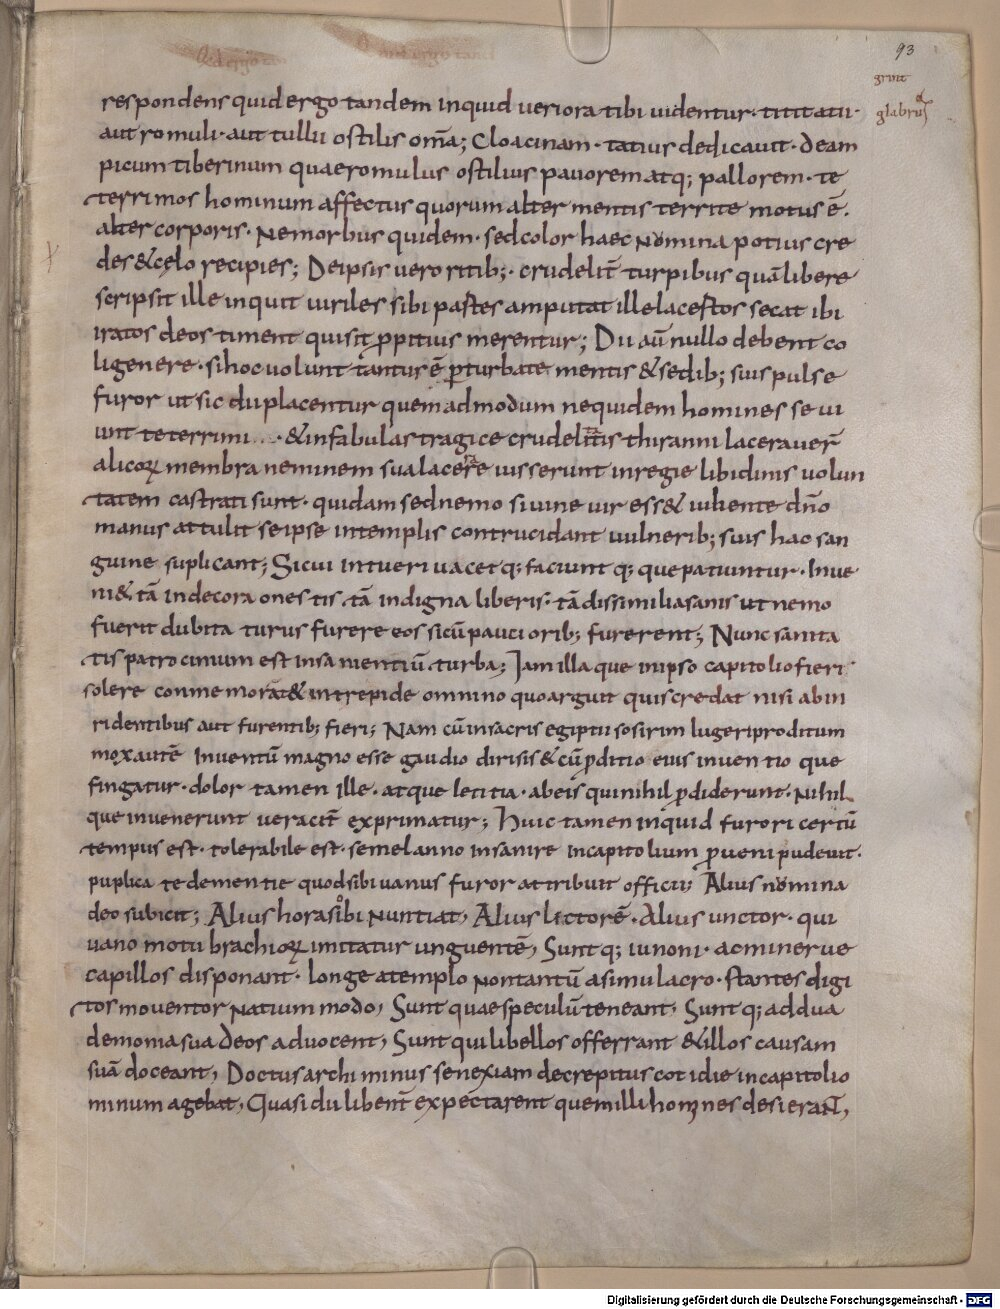 93
grint
glabrus
respondens quid ergo tandem inquid ueriora tibi uidentur· titi tatii·
aut romuli· aut tullii ostilis om̄a; Cloacinam· tatius dedicauit· deam
picum tiberinum quae romulus ostilius pauorem atq; pallorem· te
terrimos hominum affectus quorum alter mentis territe motus ē·
alter corporis· Nemorbus quidem· sed color haec Nomina potius cre
des & cęlo recipies; De ipsis uero ritib;· crudelit̄ turpibus quā libere
scripsit ille inquit uiriles sibi pastes amputat ille lacestos secat ibi
iratos deos timent qui sit ꝓpitius merentur; Dii aū nullo debent co
ligenere· si hoc uolunt tantus ē ꝑturbate mentis & sedib; suis pulse
furor ut sic dii placentur quem ad modum ne quidem homines se ui
unt teterrimi & in fabulas tragice crudelitatis thiranni lacerauer̄
alicoꝝ membra neminem sua lacerare iusserunt in regie libidinis uolun
tatem castrati sunt· quidam sed nemo siuine uir ess& iubente dn̄o
manus attulit se ipse in templis contrucidant uulnerib; suis hac san
guine suplicant; Sicui intueri uacet q; faciunt q; que patiuntur· Inue
ni& tā indecora onestis tā indigna liberis· tā dissimilia sanis ut nemo
fuerit dubitaturus furere eos si cū paucioribꝫ furerent; Nunc sanita
tis patrocinium est insanientiū turba; Iam illa que in ipso capitolio fieri
solere conmemorat & intrepide omnino quo arguit quis credat nisi ab in
ridentibus aut furentib; fieri; Nam cū in sacris egiptii sosirim lugeri proditum
mox autē inuentū magno esse gaudio dirisis & cū ꝓditio eius inuentio que
fingatur· dolor tamen ille· atque letitia· ab eis qui nihil ꝓdiderunt· Nihil
que inuenerunt ueracit̄ exprimatur; Huic tamen inquid furori certū
tempus est· tolerabile est· semel anno insanire in capitolium ꝓueni pudeuit·
puplica te dementie quod sibi uanus furor attribuit officii; Alius nomina
deo subicit; Alius horas ibi Nuntiat, Alius lictorē· Alius unctor· qui
uano motu brachioꝝ imitatur unguentē, Sunt q; iunoni· ac minerue
capillos disponant· longe a templo Non tantū a simulacro· stantes digi
tos mouent or Natium modo, Sunt quae speculū teneant, Sunt q; ad dua
demonia sua deos aduocent, Sunt qui libellos offerrant & illos causam
suā doceant, Doctus archiminus senex iam decrepitus cotidie in capitolio
minum agebat, Quasi dii libent̄ expectarent quem illi homines desierant,
Digitalisierung gefördert durch die Deutsche Forschungsgemeinschaft - DFG